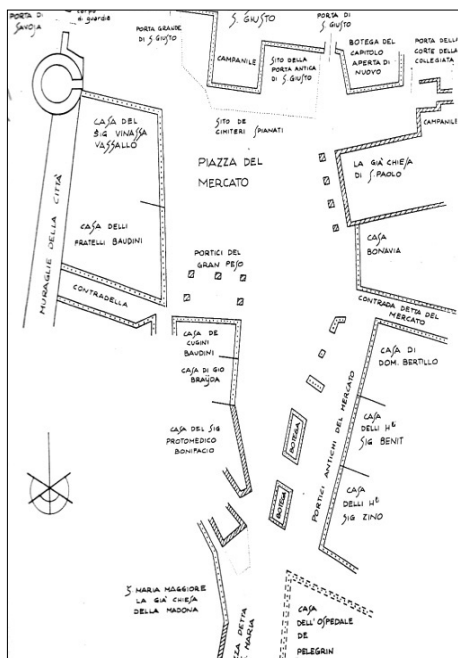 PORTA DI
SAVOJA
CORPO
di guardia
PORTA GRANDE
DI S. GIUSTO
S. GIUSTO
CAMPANILE
SITO DELLA
PORTA ANTICA
DI S. GIUSTO
PORTA DI
S. GIUSTO
BOTEGA DEL
CAPITOLO
APERTA DI
NUOVO
PORTA DELLA
CORTE DELLA
COLLEGIATA
CAMPANILE
CASA DEL
SIG VINASSA
VASSALLO
SITO DE
CIMITERI SPIANATI
PIAZZA DEL
MERCATO
LA GIÀ CHIESA
DI S. PAOLO
MURAGLIE DELLA CITTÀ
CASA DELLI
FRATELLI BAUDINI
CASA
BONAVIA
PORTICI DEL
GRAN PESO
CONTRADELLA
CONTRADA DETTA DEL
MERCATO
CASA DE
CUGINI
BAUDINI
CASA DI GIO
BRAYDA
CASA DI
DOM. BERTILLO
CASA DEL SIG
PROTOMEDICO
BONIFACIO
BOTEGA
PORTICI ANTICHI DEL MERCATO
CASA
DELLI H
SIG BENIT
BOTEGA
CASA
DELLI H
SIG ZINO
S MARIA MAGGIORE
LA GIÀ CHIESA
DELLA MADONA
DETTA
MARIA
CASA
DELL'OSPEDALE
DE
PELEGRIN